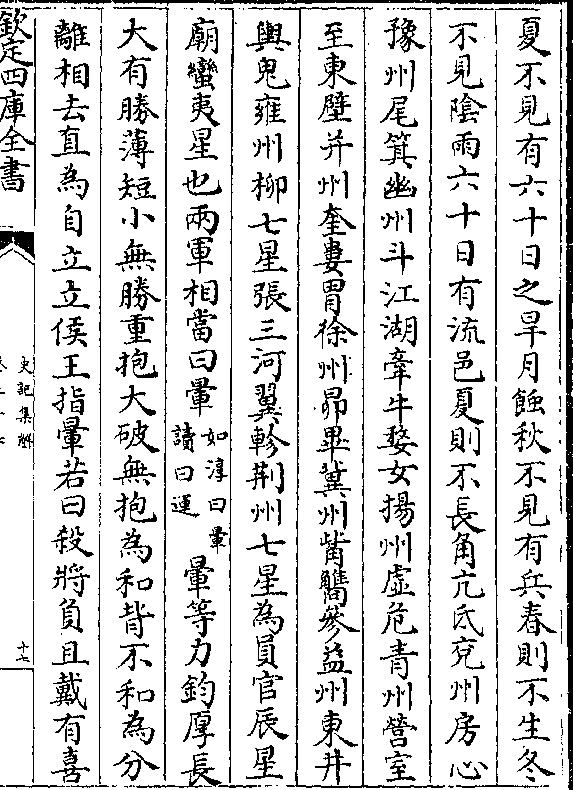 夏不見有六十日之旱月蝕秋不見有兵春則不生冬
不見陰雨六十日有流邑夏則不長角亢氐兖州房心
豫州尾箕幽州斗江湖牽牛婺女揚州虛危青州營室
至東壁并州奎婁胃徐州昴畢冀州觜觿參益州東井
輿鬼雍州柳七星張三河翼軫荆州七星為員官辰星
廟蠻夷星也兩軍相當曰暈如淳曰暈讀曰運暈等力鈞厚長
大有勝薄短小無勝重抱大破無抱為和背不和為分
離相去直為自立立侯王指暈若曰殺將負且戴有喜
欽定四庫全書
史記集解
卷二十七
十七